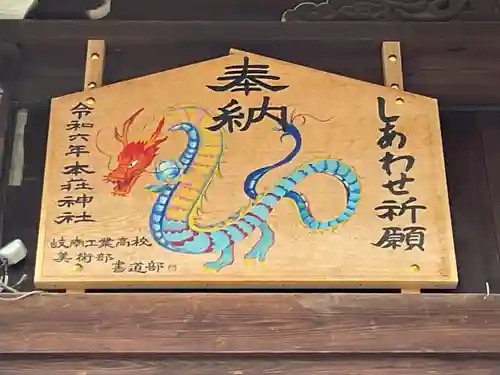 奉納
しあわせ祈願
令和六年 本荘神社
岐南工業高校
美術部
書道部